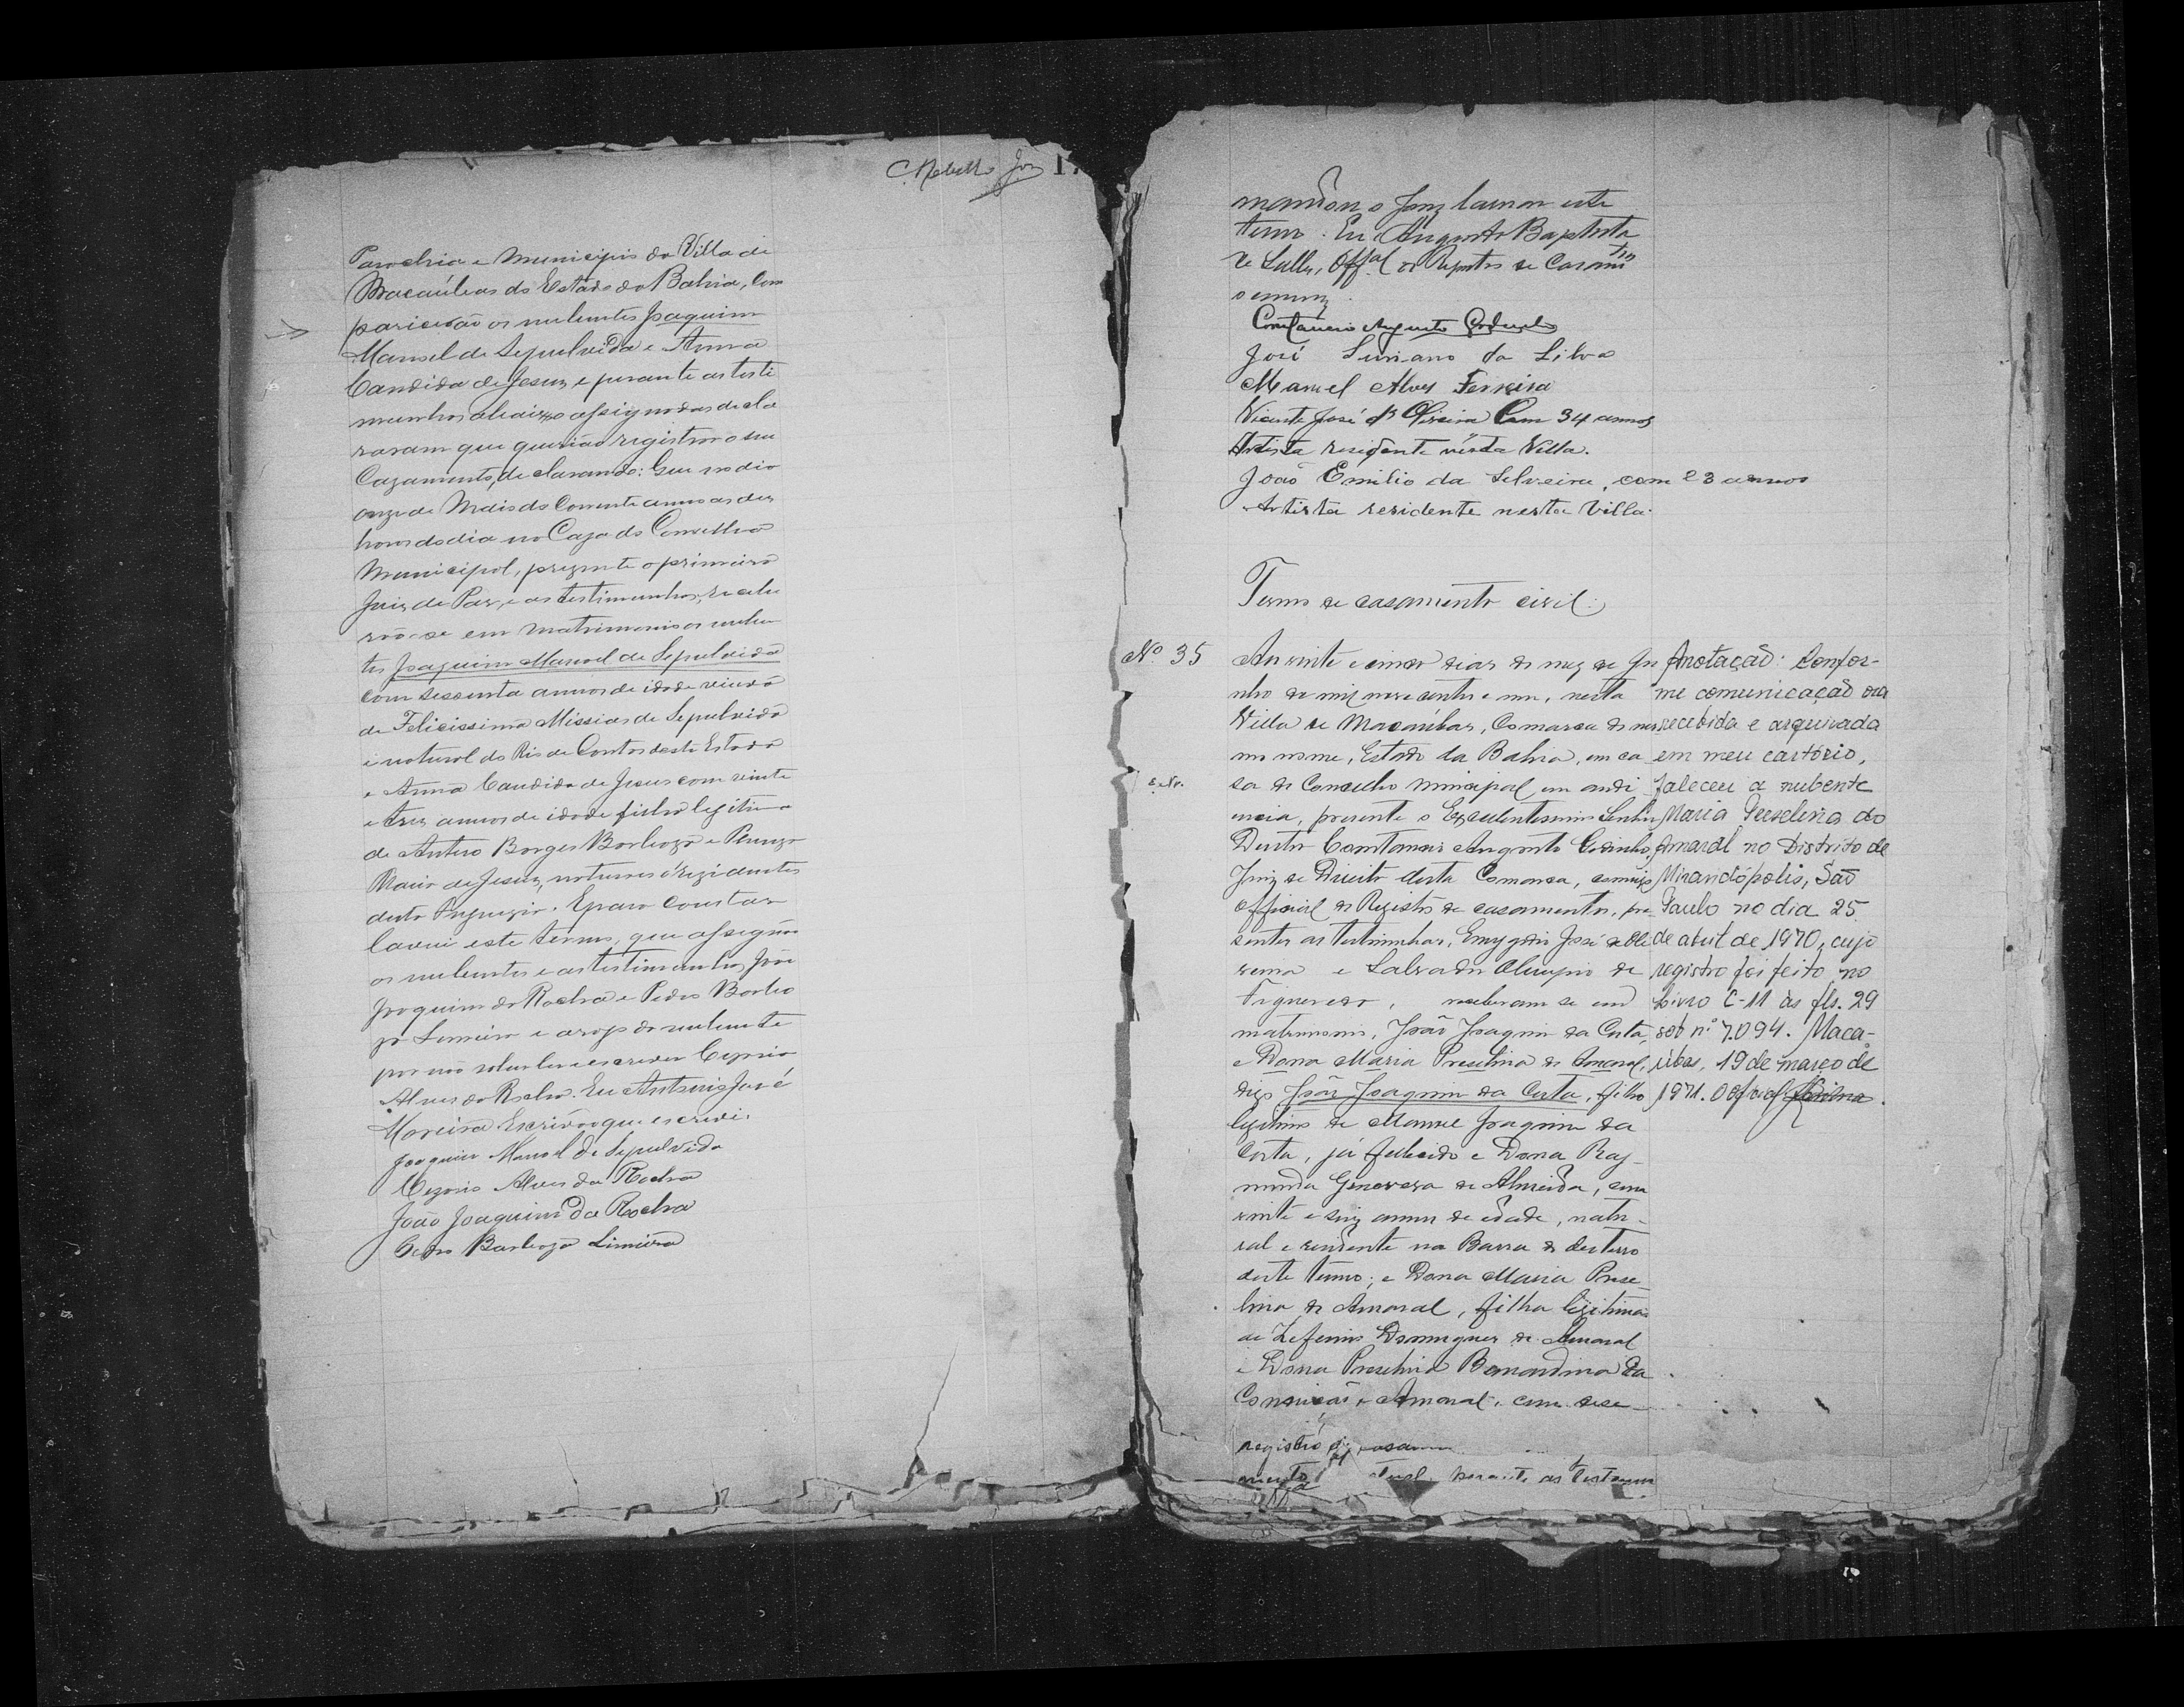 C. Rebello Jor 17
Parochia e Municipio da Villa de
Macaúbas do Estado da Bahia, com
parecerão os nubentes Joaquim
Manoel de Sepulvida e Anna
Candida de Jesus, e perante as teste
munhas abaixo assignadas decla
raram que querião registrar o seu
Cazamento, declarando: Que no dia
onze de Maio do Corrente anno as dez
horas do dia na Caza do Conselho
Municipal, prezente o primeiro
Juiz de Paz, e as testimunhas, recebe
rão-se em matrimonio os nuben
tes Joaquim Manoel de Sepulvida
com sessenta annos de idade viuvo
de Felicissima Missias de Sepulvida
e natural do Rio de Contas deste Estado
e Anna Candida de Jesus com vinte
e tres annos de idade filha legitima
de Antero Borges Barboza e
Maria de Jesus, naturaes é rezidentes
desta freguezia. E para constar
lavrei este termo, que assignão
os nubentes e as testimunhas João
Joaquim da Rocha e Pedro Barbo
za Limeira e arogo da nubente
por não saber ler e escrever
Alves da Rocha. Eu Antonio José
Moreira Escrivão que escrevi.
Joaquim Manoel de Sepulvida
Alves da Rocha
João Joaquim da Rocha
Pedro Barboza Limeira
mandou o Juiz lavrar este
termo. Eu Augusto Baptista
de Salles, Offal do Registro de Casamtos
o escrevy.
Constancio Augusto
José Luriano da Silva
Manuel Alves Ferreira
Vicente José d'Oliveira Com 34 annos
Artista residente nésta Villa.
João Emilio da Silveira, com 23 annos
Artista residente nesta Villa.
Termo de casamento civil:
No. 35
Aos vinte e cinco dias do mez de Ju
nho de mil nove centos e um, nesta
Villa de Macaúbas, Comarca do mes
mo nome, Estado da Bahia, em ca
sa do Conselho Municipal em audi
encia, presente o Excellentissimo Senhor
Doutor Constancio Augusto
Juiz de Direito desta Comarca, comigo
official do Registro de casamentos, pre
sentes as testimunhas, Emygdio José de Oli
veira e Salvador Olimpio de
Figueredo, receberam se em
matrimonio, João Joaquim da Costa,
e Dona Maria Preselina do Amaral,
digo João Joaquim da Costa, filho
legitimo de Manoel Joaquim da
Costa, já fallecido e Dona Ray-
munda Genoveva de Almeida, com
vinte e seis annos de edade, natu-
ral e residente na Barra do desterro
deste termo; e Dona Maria Prese-
lina do Amaral, filha legitima
de Zeferino Domingues do Amaral
e Dona Preselina Bernardina da
Conceição e Amaral, com deze-
registro de casa
mento perante as testemu
Anotação: Confor-
me comunicação ora
recebida e arquivada
em meu cartório,
faleceu a nubente
Maria Preselina do
Amaral no Distrito de
Mirandópolis, São
Paulo no dia 25
de abril de 1970, cujo
registro foi feito no
Livro C-11 às fls. 29
sob nº 7.094. Maca-
úbas, 19 de março de
1971. O Oficial